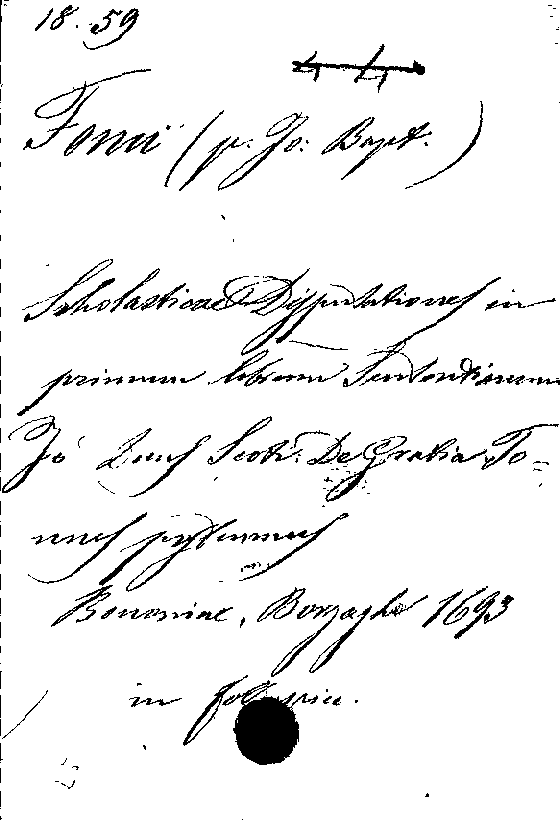 18. 59
44
Fonii (p. Jo: Bapt.)
Scholasticae Disputationes in
primum librum Sententiarum
Jo Duns Scoti. De Gratia To=
mus
Bononiae, Borzaghi 1693
in fol.